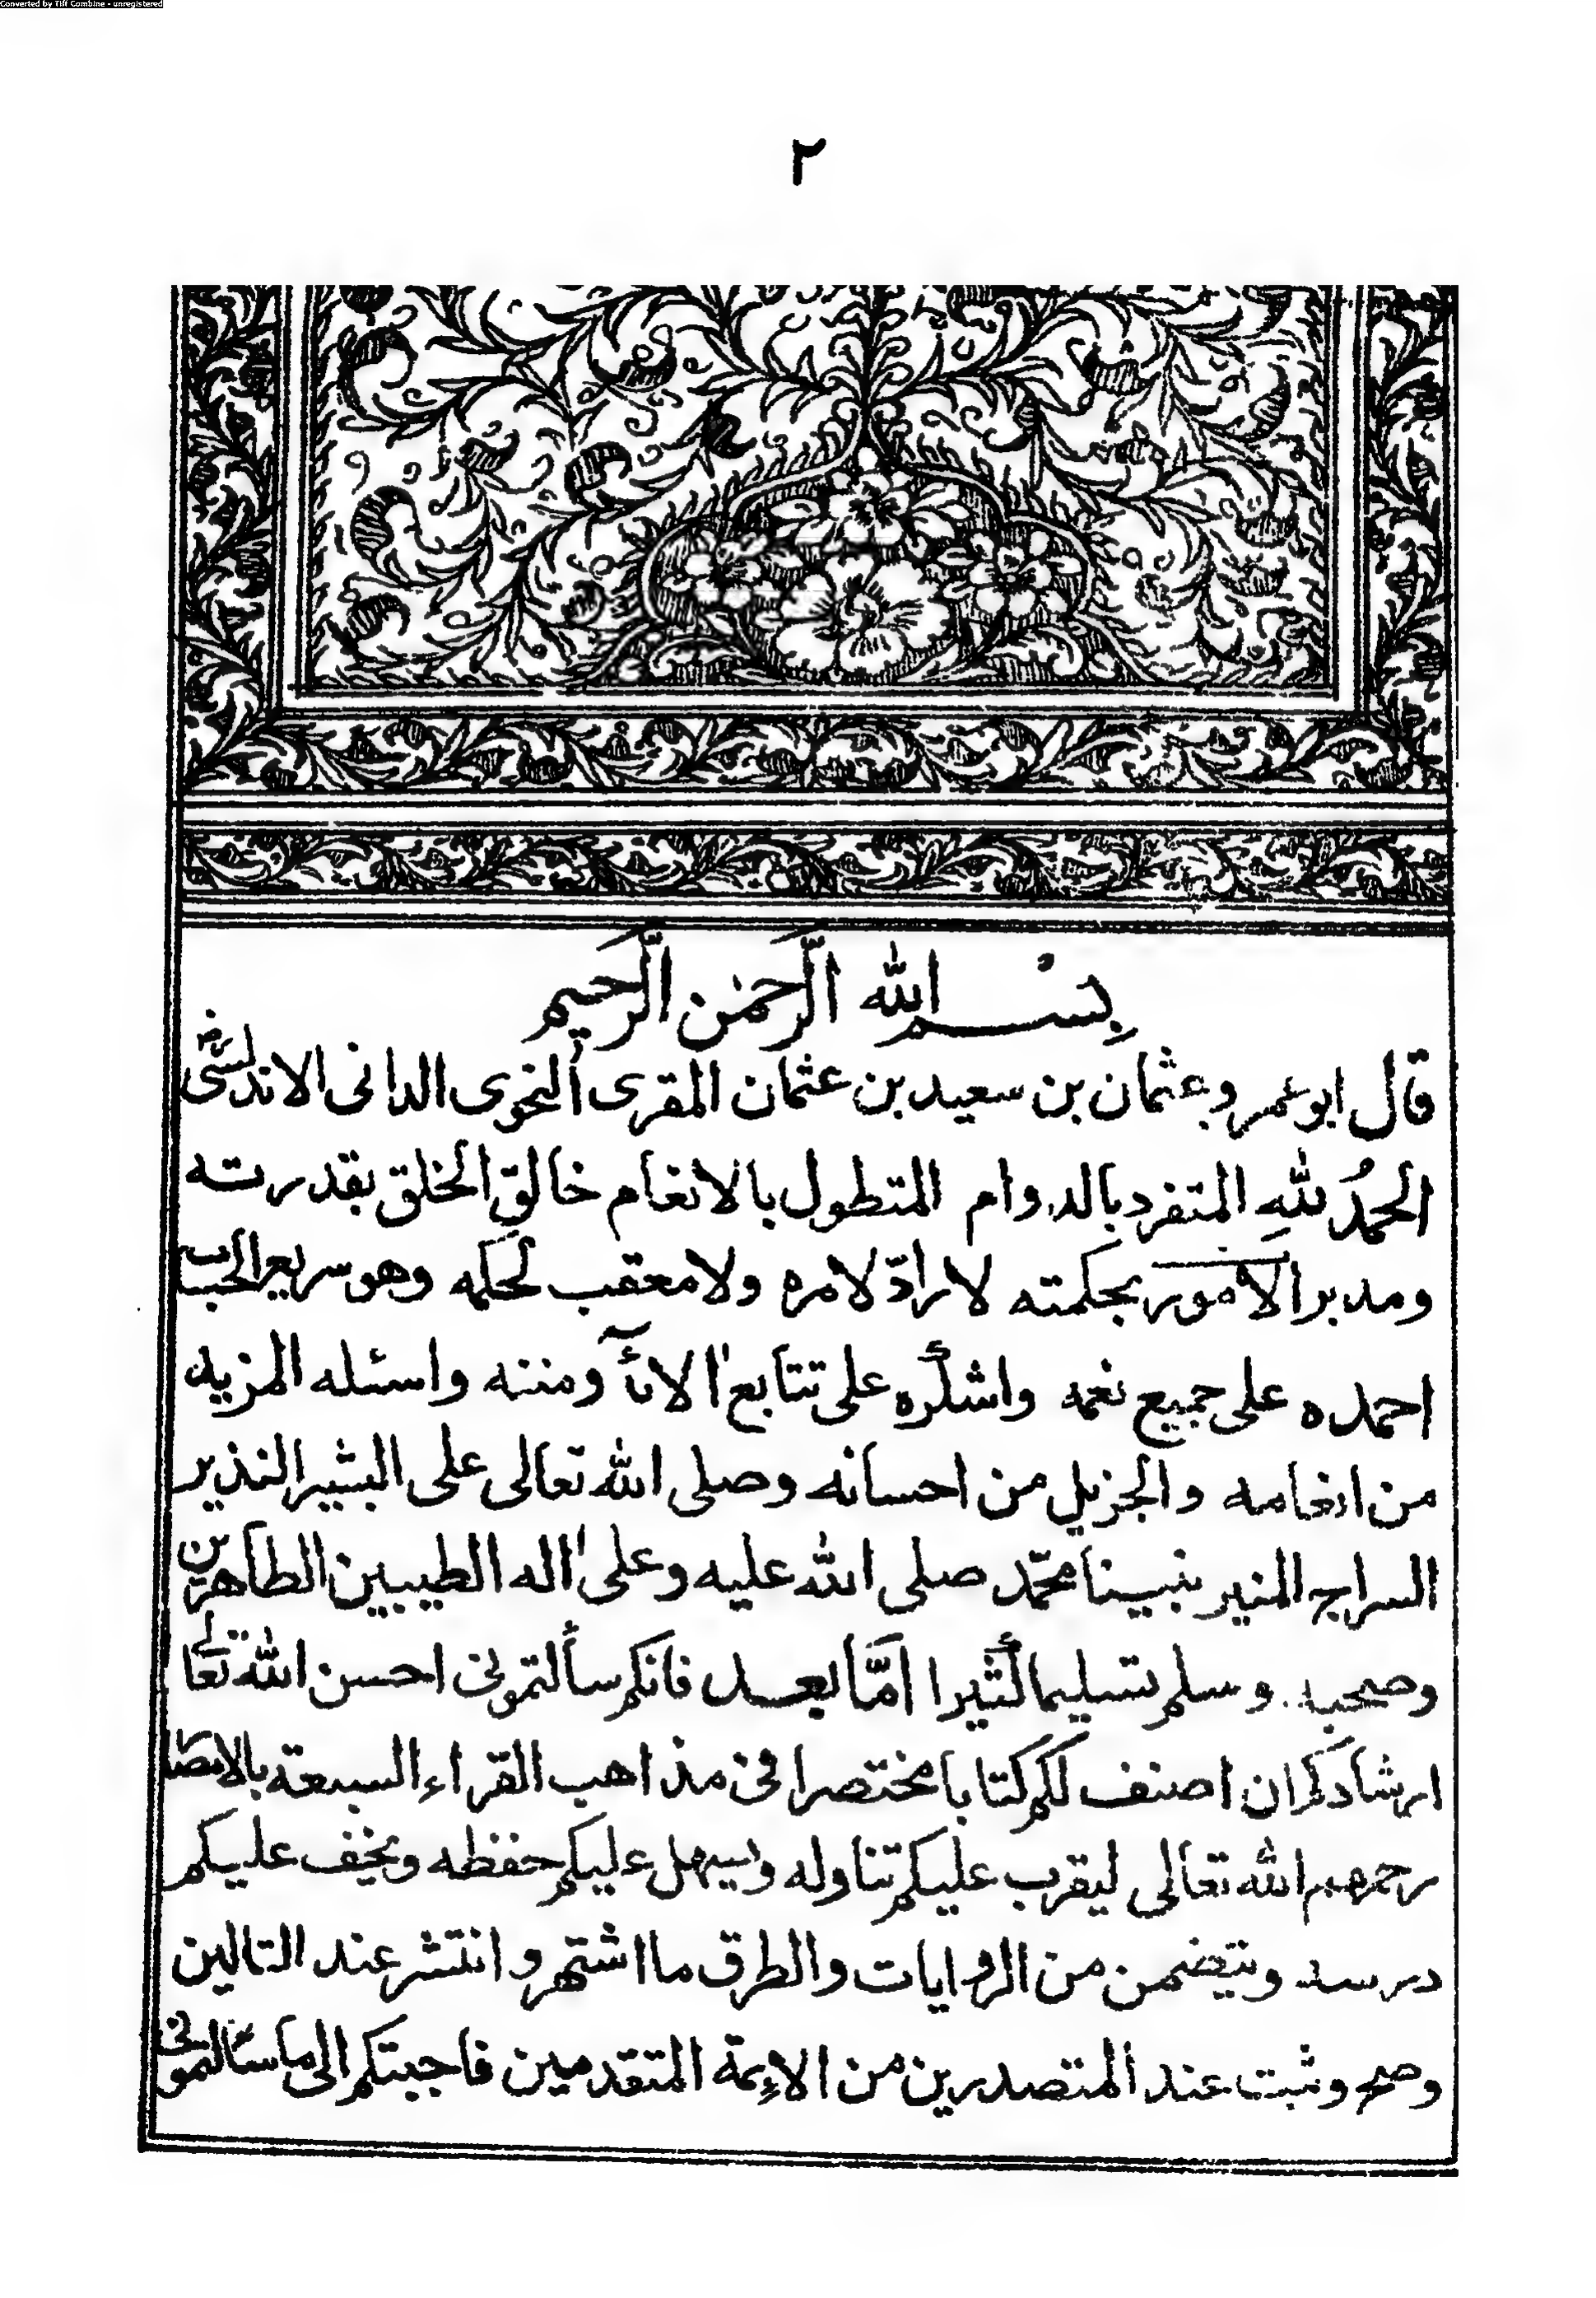 Converted by Tiff Combine - unregistered
٢
بِسْم الله الرَّحمٰن الرَّحيم
قال ابو عمرو عثمان بن سعيد بن عثمان المقرى النحوى الدانى الاندلسىّ رض
الحمدُ للهِ المتفرد بالدوام المتطول بالانعام خالق الخلق بقدرته
ومدبر الامور بحكمته لا رادّ لامره ولا معقب لحكمه وهو سريع الحساب
احمده على جميع نعمه واشكره على تتابع الائه ومننه واسئله المزيد
من انعامه والجزيل من احسانه وصلى الله تعالى على البشير النذير
السراج المنير نبينا محمّد صلى الله عليه وعلى اٰله الطيبين الطاهرين
وصحبه وسلم تسليما كثيرا امّا بعد فانكم سألتمونى احسن الله تعالى
ارشادكم ان اصنف لكم كتابا مختصرا فى مذاهب القراء السبعة بالامصار
رحمهم الله تعالى ليقرب عليكم تناوله ويسهل عليكم حفظه ويخف عليكم
درسه ويتضمن من الروايات والطرق ما اشتهر وانتشر عند التالين
وصح وثبت عند المتصدرين من الائمة المتقدمين فاجبتكم الى ما سألتمونى